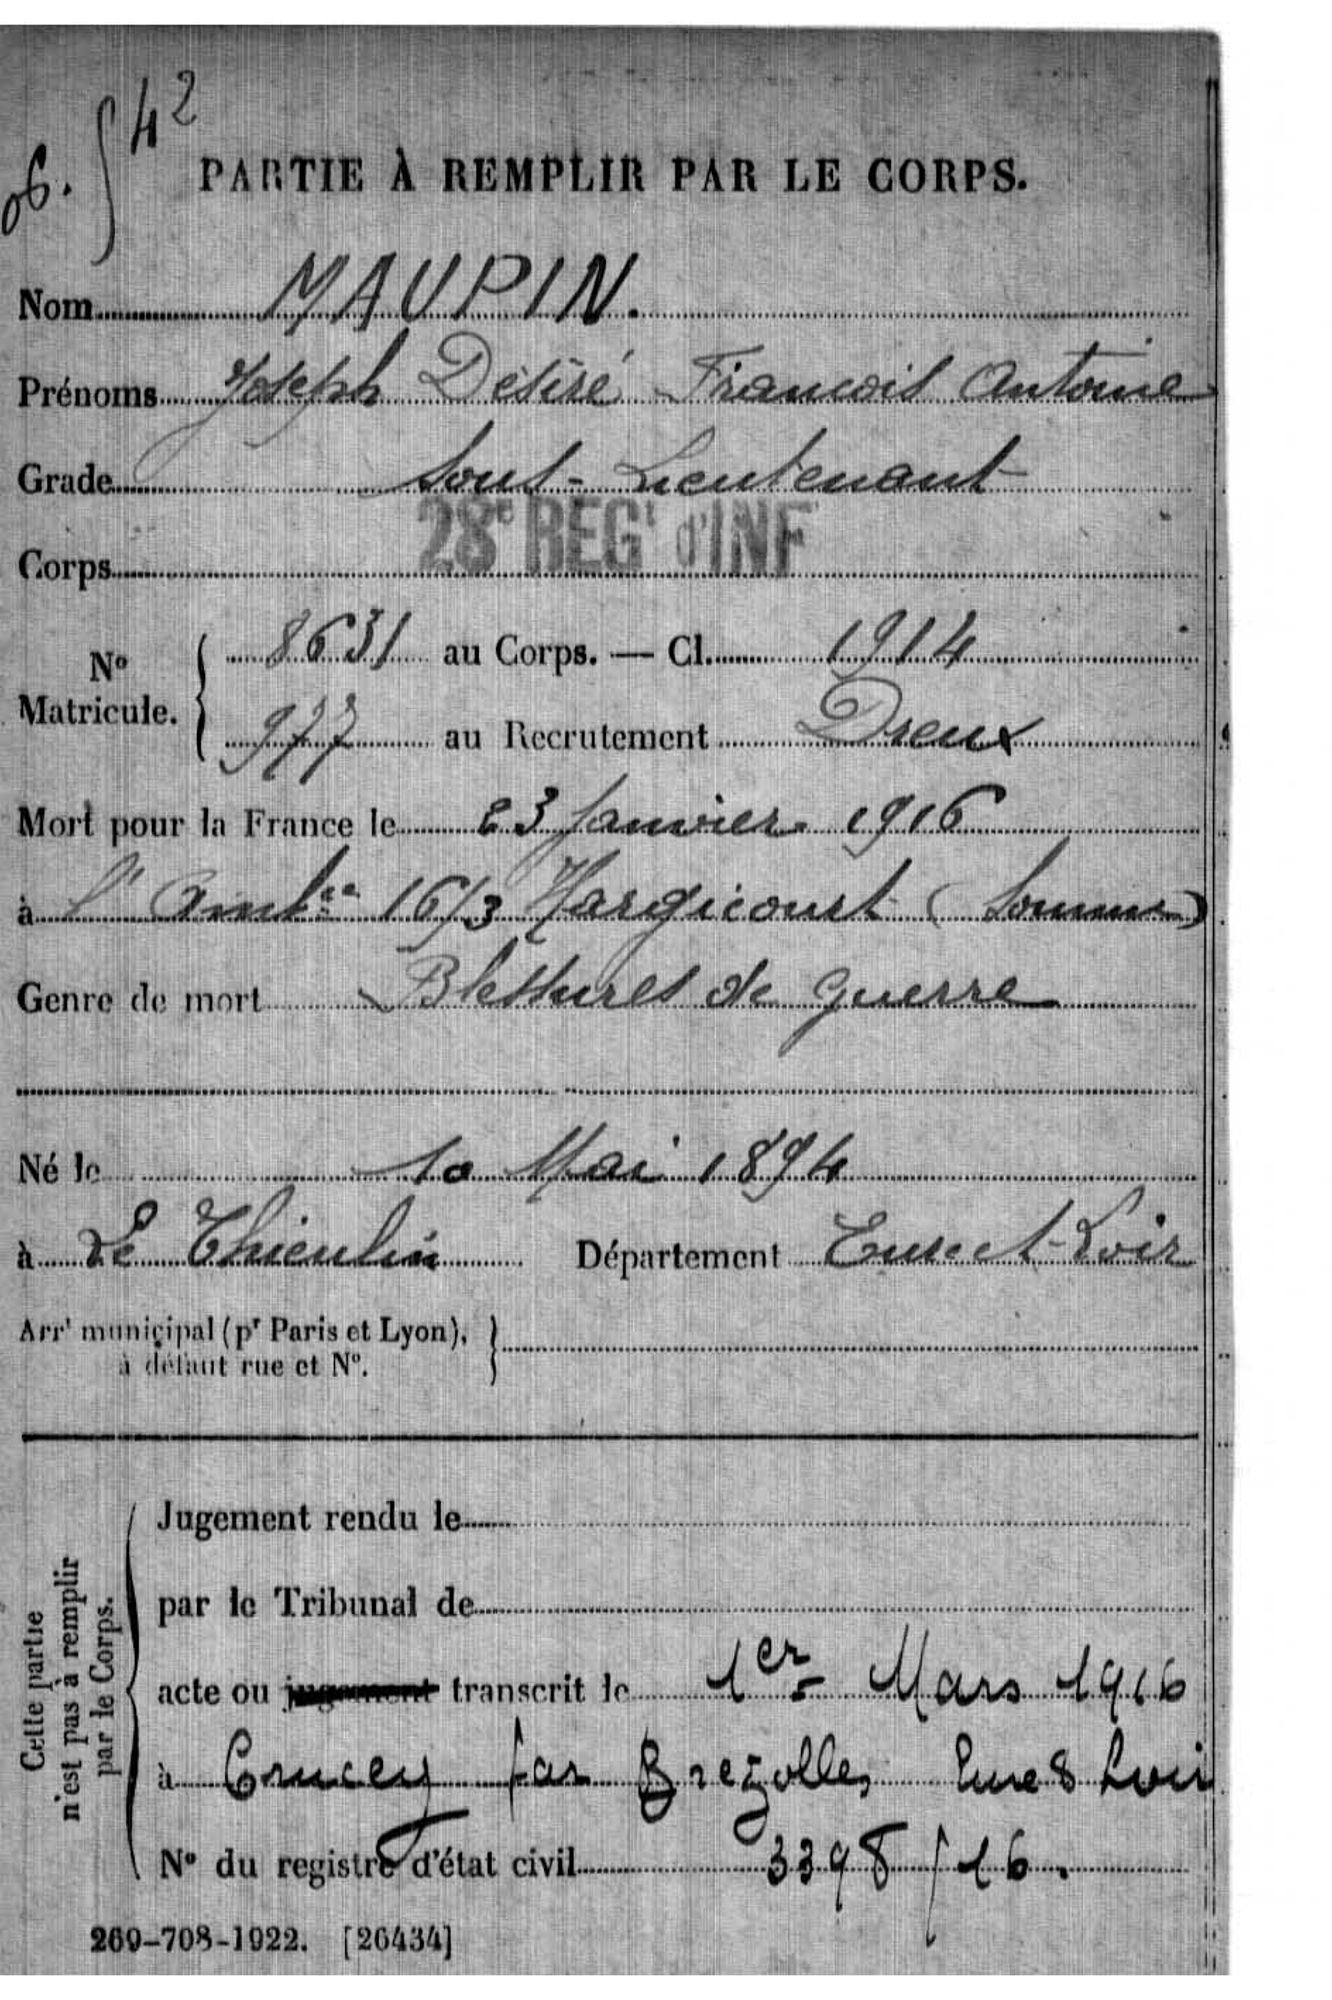 of. ∫ 42
PARTIE À REMPLIR PAR LE CORPS.
Nom MAUPIN.
Prénoms Joseph Désiré François Antoine
Grade Sous-Lieutenant
Corps 28e REGt d'INF
No Matricule. { 8631 au Corps. — Cl. 1914
977 au Recrutement Dreux
Mort pour la France le 23 Janvier 1916
à l'Ambce 16/3 Hargicourt (Somme)
Genre de mort Blessures de guerre
Né le 10 Mai 1894
à Le Thieulin Département Eure et-Loir
Arrt municipal (pr Paris et Lyon), }
à défaut rue et No.
Cette partie
n'est pas à remplir
par le Corps.
Jugement rendu le
par le Tribunal de
acte ou jugement transcrit le 1er Mars 1916
à Crucey par Brezolles Eure & Loir
No du registre d'état civil 3398/16.
269-708-1922. [26434]